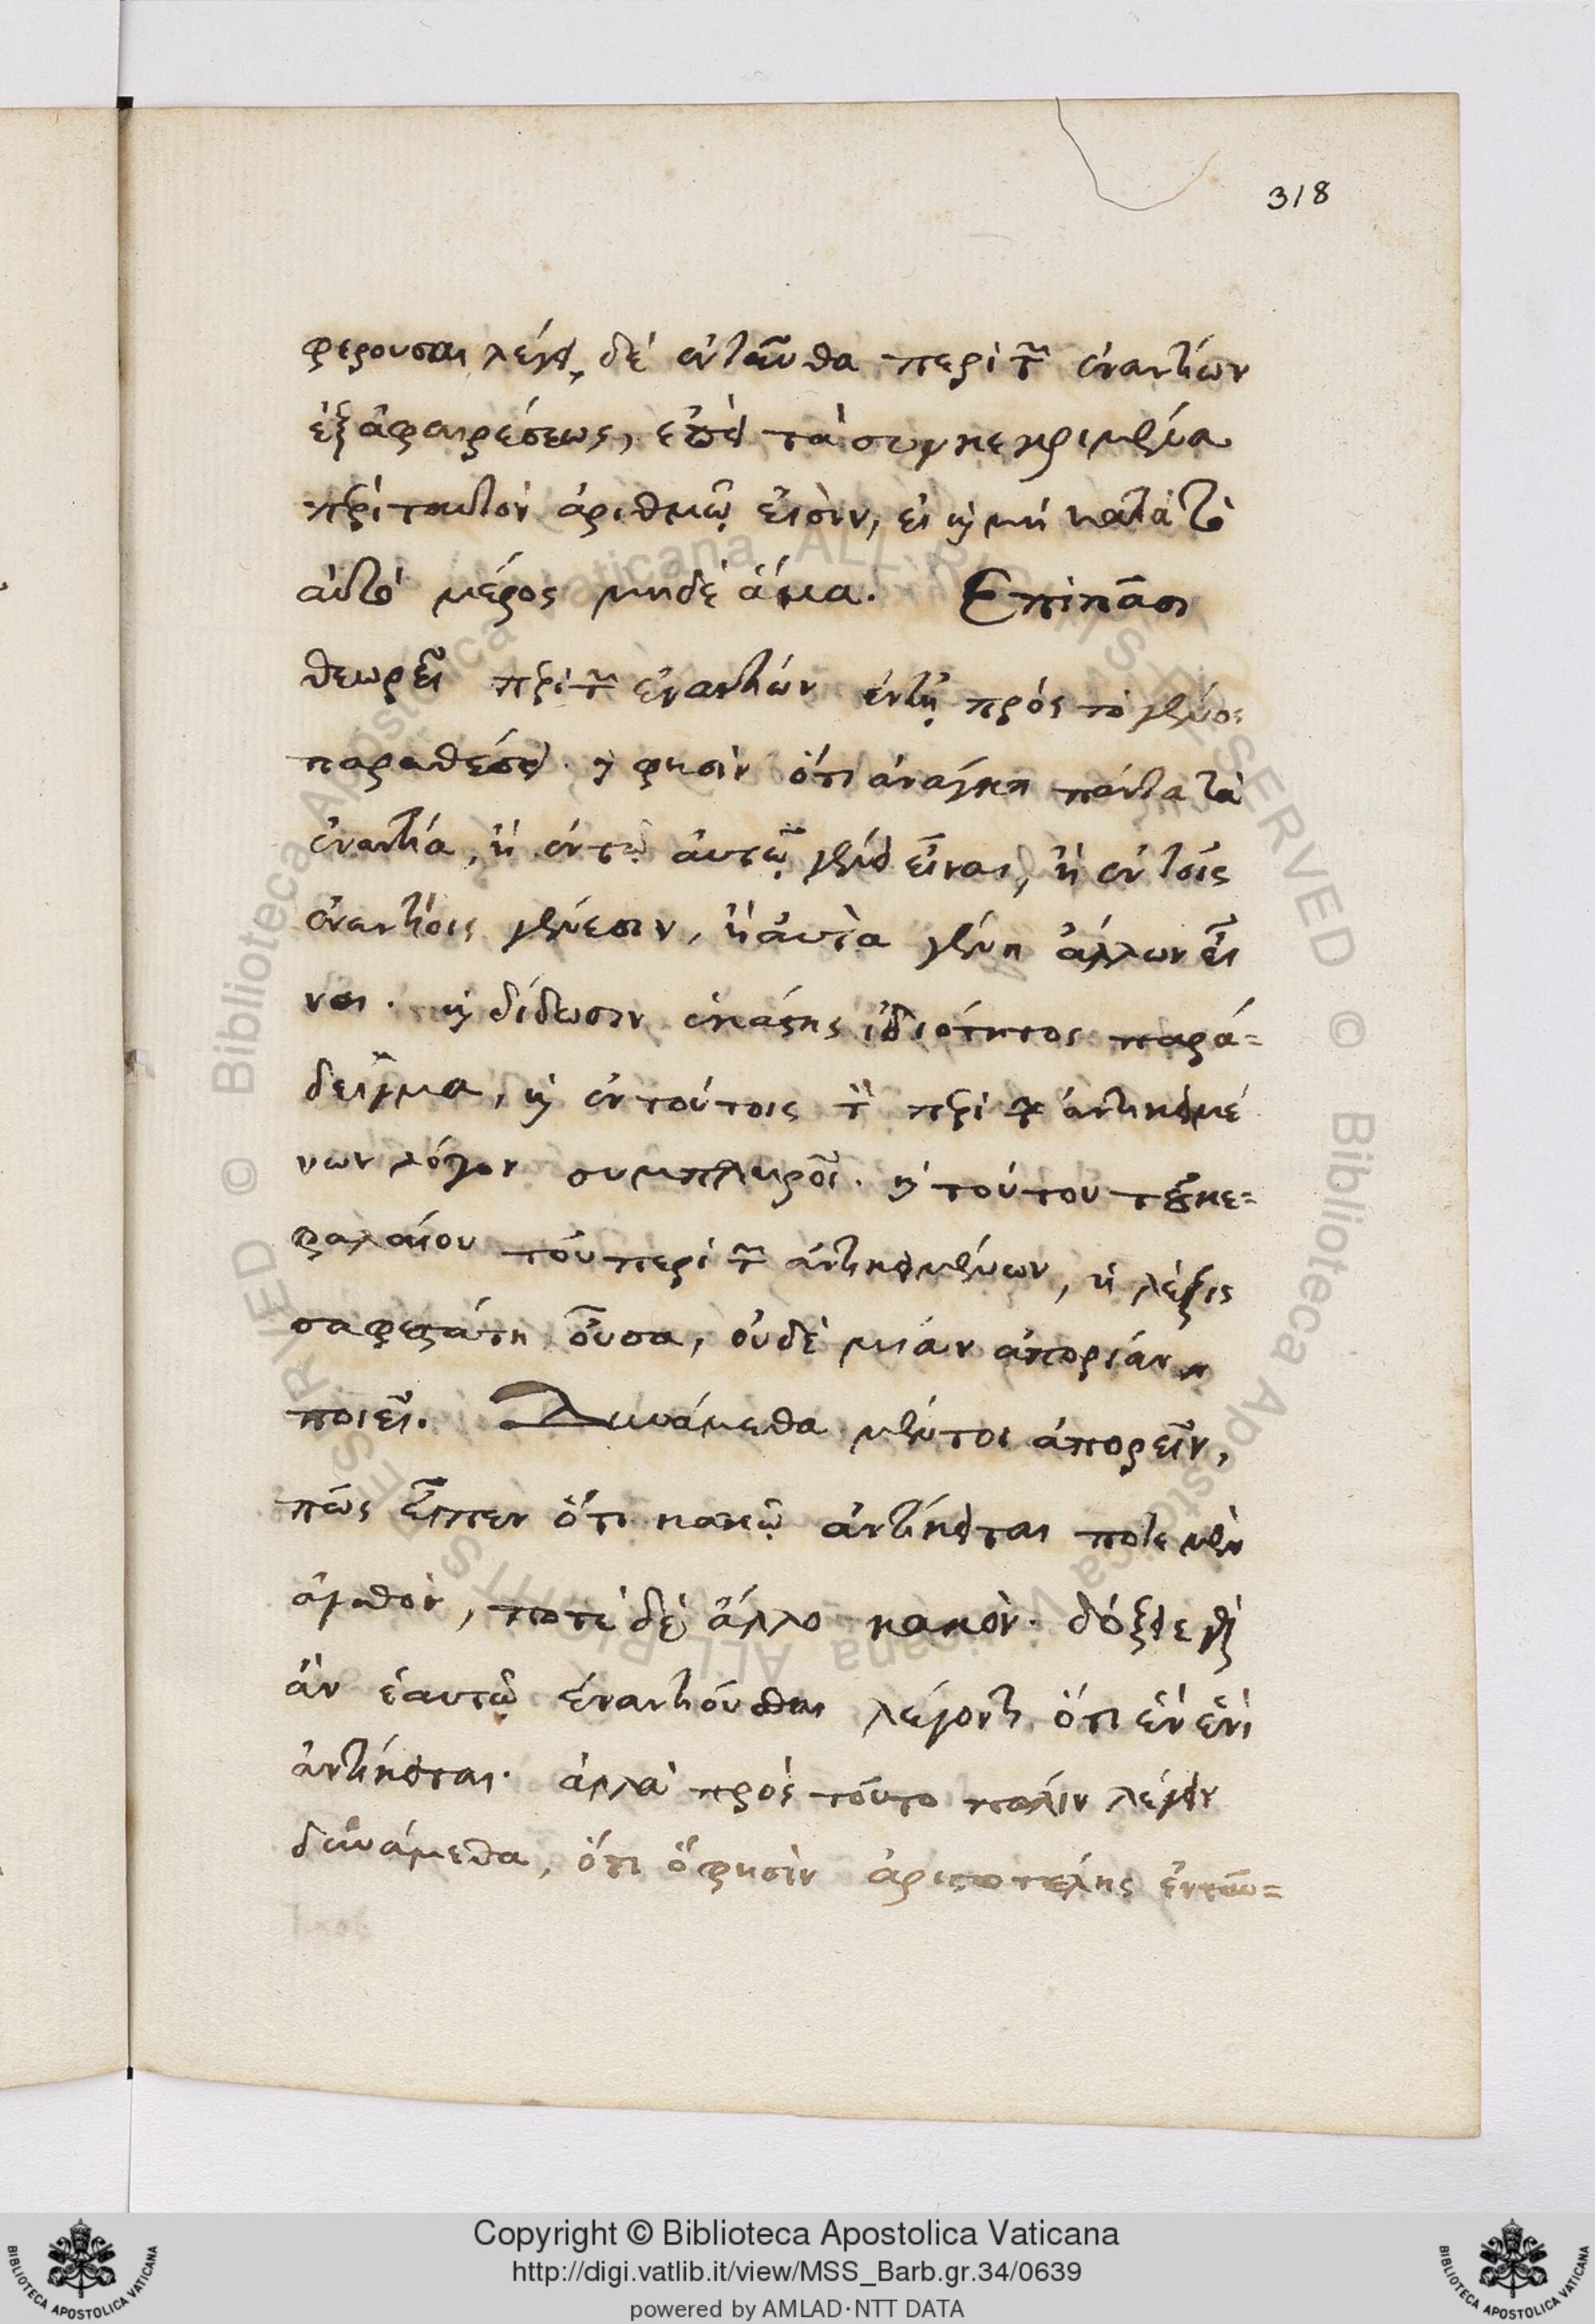 318
φερουσαι λέγει δὲ ἐνταῦθα περὶ τῶν ἐναντίων
ἐξ ἀφαιρέσεως, ἐπεὶ τὰ συγκεκριμένα
περὶ ταυτὸν ἀριθμῷ εἰσὶν, εἰ καὶ μὴ κατὰ τὸ
αὐτὸ μέρος μηδὲ ἅμα. Ἐπὶ πᾶσι
θεωρεῖ περὶ τῶν ἐναντίων ἐν τῇ πρὸς τὸ γένος
παραθέσει. καὶ φησὶν ὅτι ἀνάγκη πάντα τὰ
ἐναντία, ἢ ἐν τῷ αὐτῷ γένει εἶναι, ἢ ἐν τοῖς
ἐναντίοις γένεσιν, ἢ αὐτὰ γένη ἄλλων εἶ
ναι. καὶ δίδωσιν ἑκάστης ἰδιότητος παρά=
δειγμα, καὶ ἐν τούτοις τὸν περὶ τῶν ἀντικειμέ
νων λόγον συμπληροῖ. καὶ τούτου τοῦ κε=
φαλαίου τοῦ περὶ τῶν ἀντικειμένων, ἡ λέξις
σαφεστάτη οὖσα, οὐδὲ μίαν ἀπορίαν
ποιεῖ. Δυνάμεθα μέντοι ἀπορεῖν,
πῶς εἶπεν ὅτι κακῷ ἀντίκειται ποτὲ μὲν
ἀγαθὸν, ποτὲ δὲ ἄλλο κακὸν. δόξειε γὰρ
ἂν ἑαυτῷ ἐναντιοῦσθαι λέγοντι ὅτι ἓν ἑνὶ
ἀντίκειται. ἀλλὰ πρὸς τοῦτο πάλιν λέγειν
δυνάμεθα, ὅτι ὅ φησὶν ἀριστοτέλης ἐνταῦ=
Copyright © Biblioteca Apostolica Vaticana
http://digi.vatlib.it/view/MSS_Barb.gr.34/0639
powered by AMLAD·NTT DATA